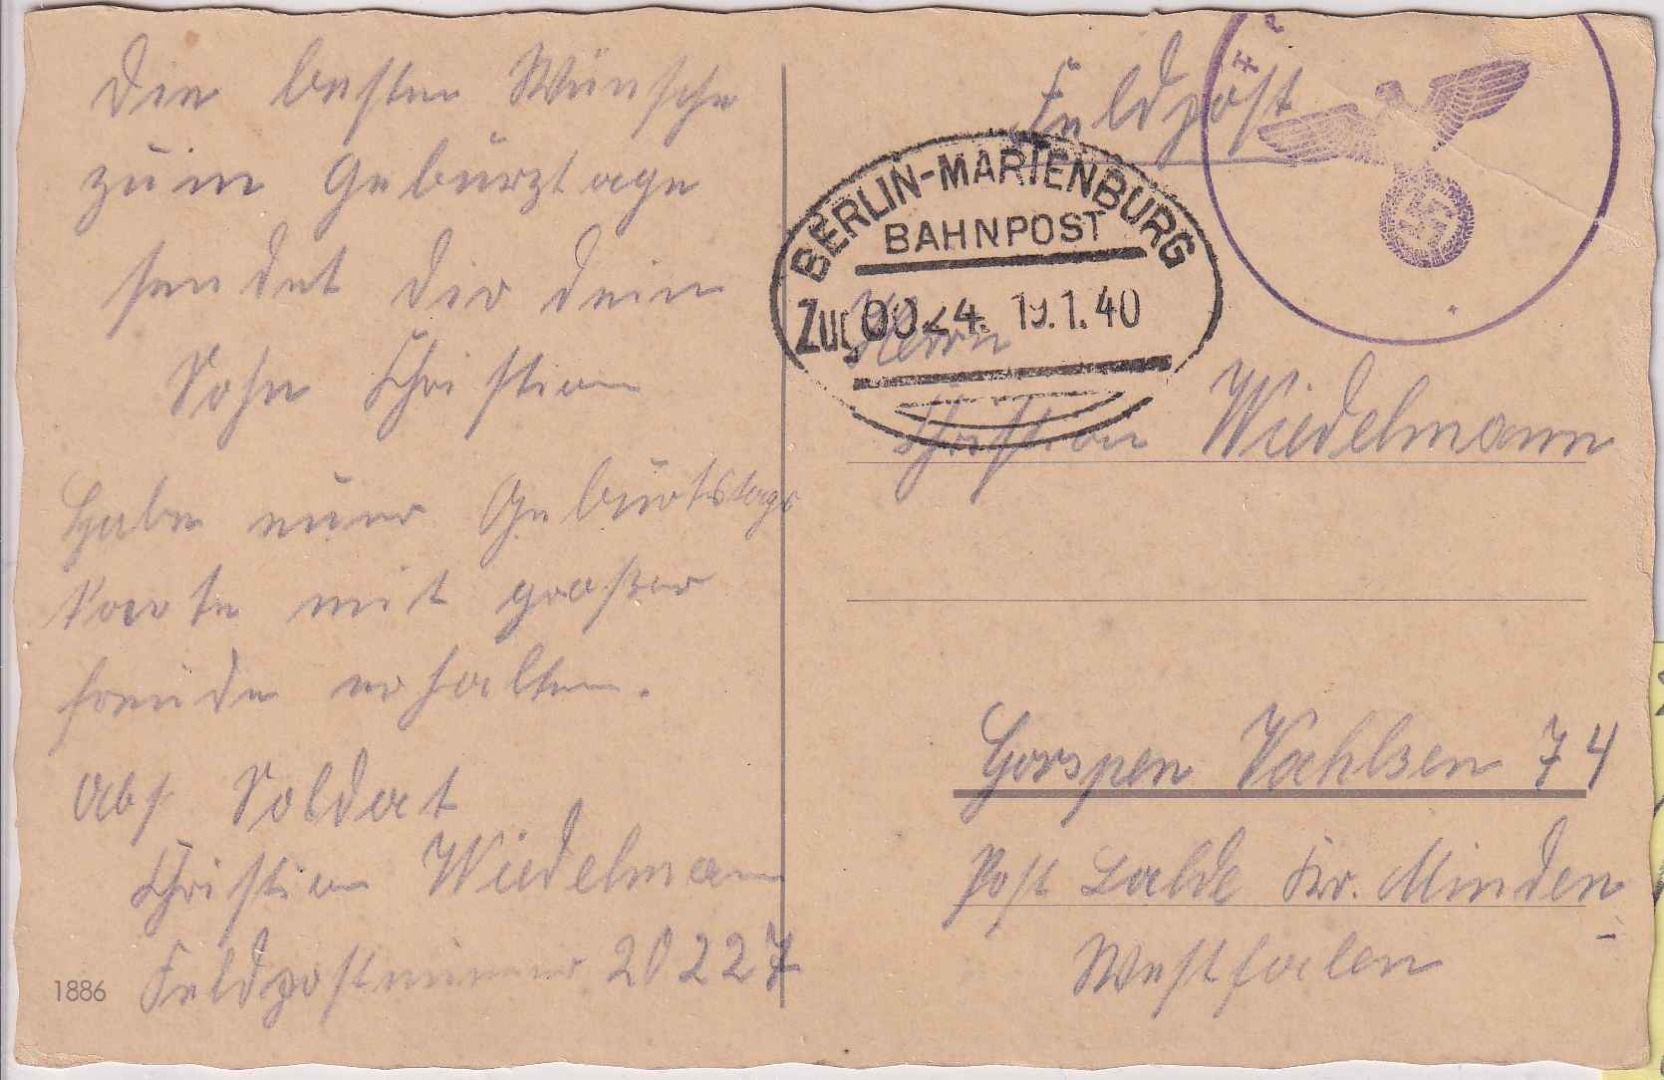 Die besten Wünsche
zum Gebürztage
sendet dir dein
Sohn Christian
Habe euer Geburtstags
karte mit großer
freude erhalten.
Abs. Soldat
Christian Wiedelmann
Feldpostnummer 20227
1886
Feldpost
BERLIN-MARIENBURG
BAHNPOST
Zug 19.1.40
Herrn
Christian Wiedelmann
Gorspen Vahlsen 74
Post Lalde Kr. Minden
Westfalen